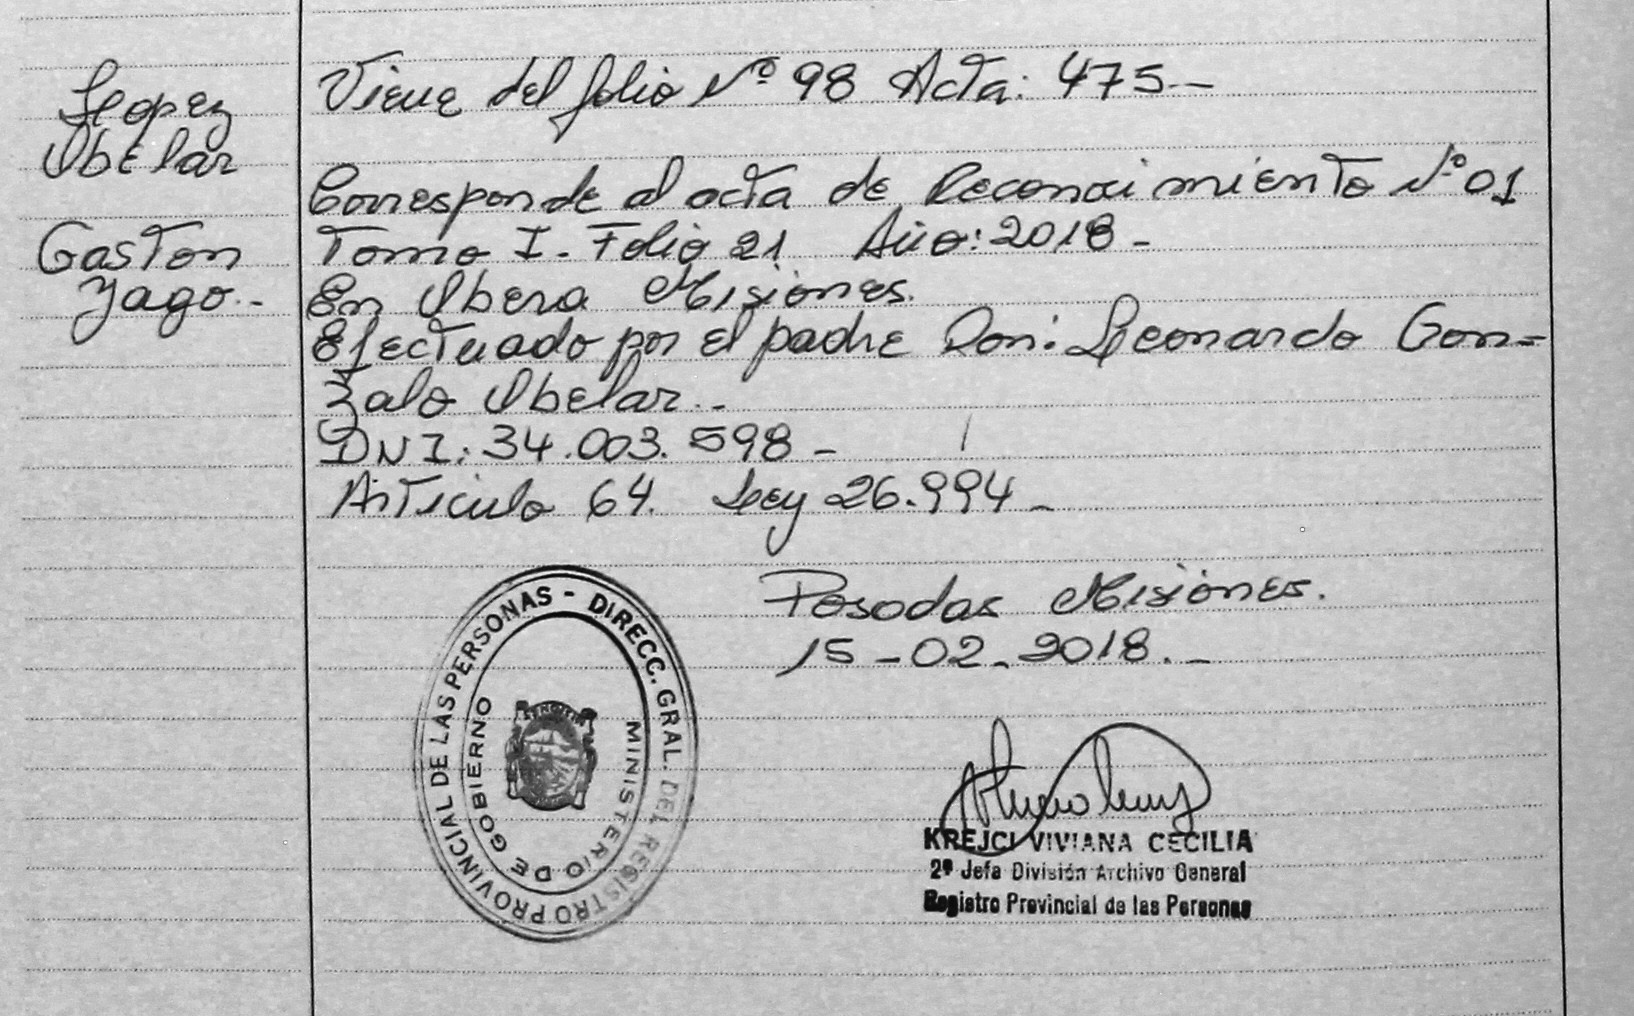 Lopez
Ubelar
Gaston
Yago.-
Viene del folio Nº 98 Acta: 475.-
Corresponde al acta de Reconocimiento Nº 01
Tomo I. Folio 21 Año: 2018 -
En Obera Misiones.
Efectuado por el padre Don: Leonardo Gon=
zalo Ubelar.-
DNI: 34.003.598 -
Articulo 64. Ley 26.994 -
Posadas Misiones.
15-02-2018.-
DIRECC. GRAL. DEL REGISTRO PROVINCIAL DE LAS PERSONAS -
MINISTERIO DE GOBIERNO
KREJCI VIVIANA CECILIA
2ª Jefa División Archivo General
Registro Provincial de las Personas